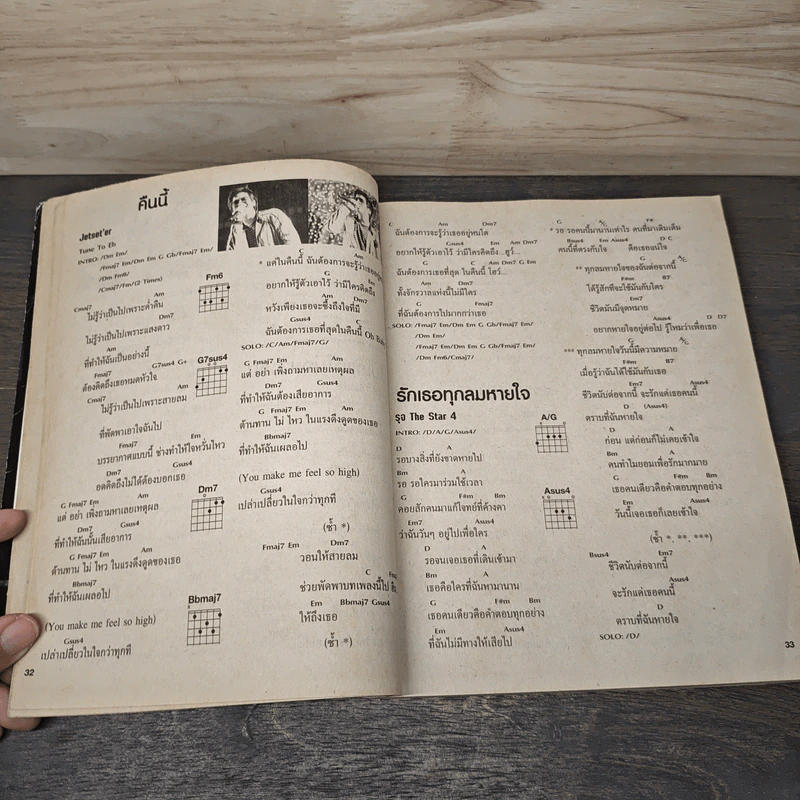 คืนนี้
Jetset'er
Tune To Eb
INTRO: /Dm Em/
/Fmaj7 Em/Dm Em G Gb/Fmaj7 Em/
/Dm Fm6/
/Cmaj7 /Fm/(2 Times)
Fm6
Cmaj7 Am
ไม่รู้ว่าเป็นไปเพราะค่ำคืน
Dm7
ไม่รู้ว่าเป็นไปเพราะแสงดาว
Am
ที่ทำให้ฉันเป็นอย่างนี้
Fmaj7 G7sus4 G+
ต้องคิดถึงเธอหมดหัวใจ
G7sus4
Cmaj7 Am
ไม่รู้ว่าเป็นไปเพราะสายลม
ที่พัดพาเอาใจฉันไป
Fmaj7 Em
บรรยากาศแบบนี้ ช่างทำให้ใจหวั่นไหว
Dm Gsus4
อดคิดถึงไม่ได้ต้องบอกเธอ
Dm7
G Fmaj7 Em Am
แต่ อย่า เพิ่งถามหาเลยเหตุผล
Dm7 Gsus4
ที่ทำให้ฉันนั้นเสียอาการ
G Fmaj7 Em Am
ต้านทาน ไม่ ไหว ในแรงดึงดูดของเธอ
Bbmaj7
ที่ทำให้ฉันเผลอไป
Bbmaj7
(You make me feel so high)
Gsus4
เปล่าเปลี่ยวในใจกว่าทุกที
32
C Am
* แค่ในคืนนี้ ฉันต้องการจะรู้ว่าเธออยู่
G Em
อยากให้รู้ตัวเอาไว้ ว่ามีใครคิดถึง
Am Dm7
หวังเพียงเธอจะซึ้งถึงใจที่มี
Gsus4 C
ฉันต้องการเธอที่สุดในคืนนี้ Oh
SOLO: /C/Am/Fmaj7/G/
G Fmaj7 Em Am
แต่ อย่า เพิ่งถามหาเลยเหตุผล
Dm7 Gsus4
ที่ทำให้ฉันต้องเสียอาการ
G Fmaj7 Em Am
ต้านทาน ไม่ ไหว ในแรงดึงดูดของเธอ
Bbmaj7
ที่ทำให้ฉันเผลอไป
(You make me feel so high)
Gsus4
เปล่าเปลี่ยวในใจกว่าทุกที
(ซ้ำ *)
Fmaj7 Em Dm7
วอนให้สายลม
C
ช่วยพัดพาบทเพลงนี้ไป
Em Bbmaj7 Gsus4
ให้ถึงเธอ
(ซ้ำ *)
C Am Dm7
ฉันต้องการจะรู้ว่าเธออยู่หนใด
Gsus4 Em Am Dm7
อยากให้รู้ตัวเอาไว้ ว่ามีใครคิดถึง...ฮูว์...
G C Am Dm7 G Em
ฉันต้องการเธอที่สุด ในคืนนี้ โฮว์...
Am
ทั้งจักรวาลแห่งนี้ไม่มีใคร
G Fmaj7
ที่ฉันต้องการไปมากกว่าเธอ
SOLO: /Fmaj7 Em/Dm Em G Gb/Fmaj7 Em/
/Dm Em/
/Fmaj7 Em/Dm Em G Gb/Fmaj7 Em/
/Dm Fm6/Cmaj7/
รักเธอทุกลมหายใจ
รุจ The Star 4
A/G
INTRO: /D/A/G/Asus4/
D A
รอบางสิ่งที่ยังขาดหายไป
Bm
รอ รอใครมาร่วมใช้เวลา
Asus4
G F#m Bm
คอยสักคนมาแก้โจทย์ที่ค้างคา
Em7 Asus4
ว่าฉันวันๆ อยู่ไปเพื่อใคร
D A
รอจนเจอเธอที่เดินเข้ามา
Bm A
เธอคือใครที่ฉันหามานาน
G F#m Bm
เธอคนเดียวคือคำตอบทุกอย่าง
Em Asus4
ที่ฉันไม่มีทางให้เสียไป
* รอ รอคนนี้มานานเท่าไร คนที่มาเติมเต็ม
Bsus4 Em Asus4 D C
คนนี้ที่ตรงกับใจ คือเธอแน่ใจ
G
** ทุกลมหายใจของฉันต่อจากนี้
F#m B7
ได้รู้สึกที่จะใช้มันกับใคร
Em7
ชีวิตมันมีจุดหมาย
Asus4 D D7
อยากหายใจอยู่ต่อไป รู้ไหมว่าเพื่อเธอ
G
*** ทุกลมหายใจวันนี้มีความหมาย
F#m B7
เมื่อรู้ว่าฉันได้ใช้มันกับเธอ
Em7 Asus4
ชีวิตนับต่อจากนี้ จะรักแต่เธอคนนี้
D (Asus4)
ตราบที่ฉันหายใจ
D A
ก่อน แต่ก่อนก็ไม่เคยเข้าใจ
Bm A
คนทำไมยอมเพื่อรักมากมาย
G F#m Bm
เธอคนเดียวคือคำตอบทุกอย่าง
Em Asus4
วันนี้เจอเธอก็เลยเข้าใจ
(ซ้ำ *, **, ***)
Bsus4 Em7
ชีวิตนับต่อจากนี้
Asus4
จะรักแต่เธอคนนี้
D
ตราบที่ฉันหายใจ
SOLO: /D/
33